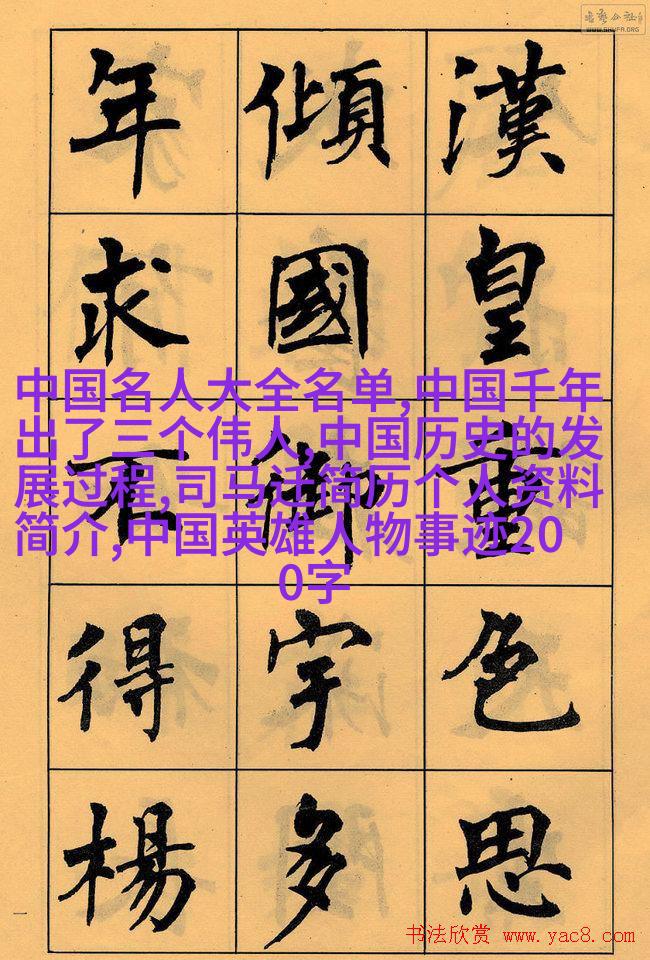 漢皇重色思
傾國御宇多
年求不得楊
中国名人大全名单,中国千年
出了三个伟人,中国历史的发
展过程,司马迁简历个人资料
简介,中国英雄人物事迹20
0字
一
书法欣赏 www.yac8.com
WWW.SHUFA.ORG